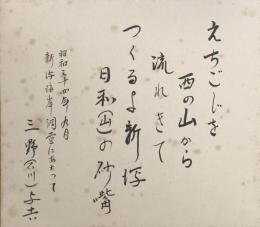 えちごじを
西の山から
流れきて
つくるよ新潟
日和(山)の砂嘴
昭和五十四年九月
新潟海岸調査にあたって
三野(石川)与吉